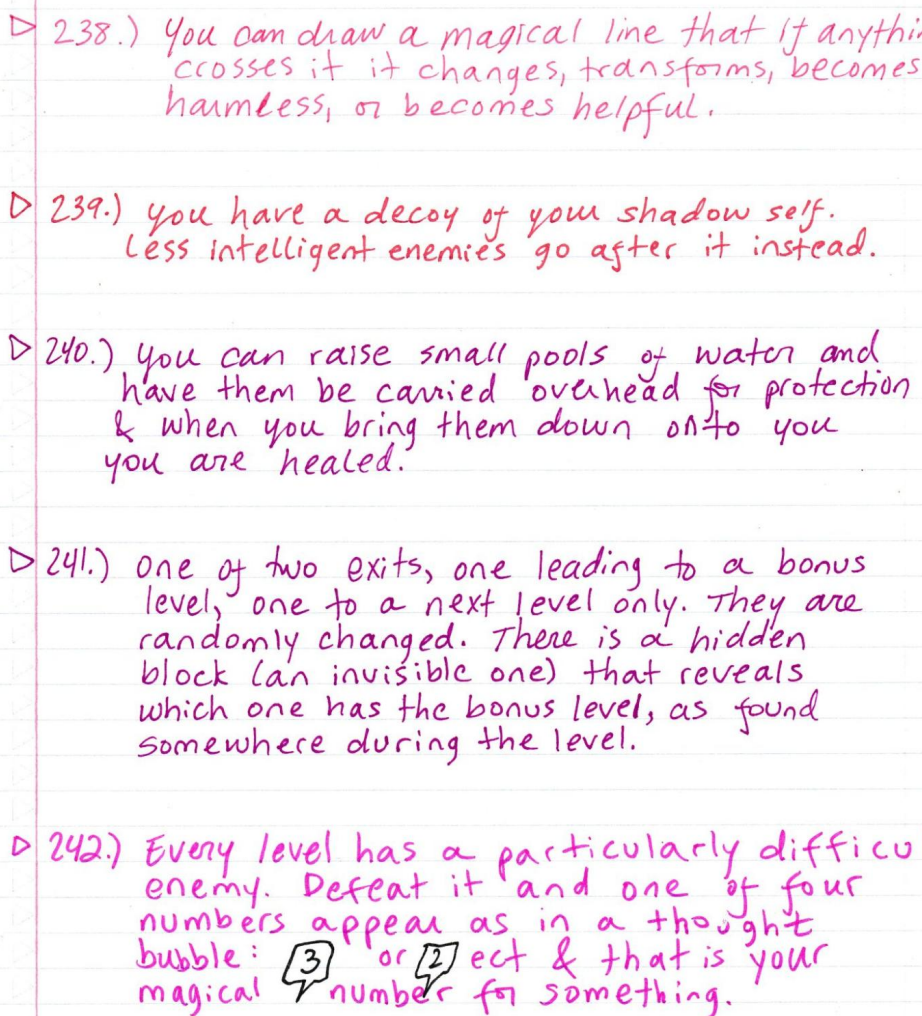 238.) You can draw a magical line that if anythin
crosses it it changes, transforms, becomes
harmless, or becomes helpful.
239.) you have a decoy of your shadow self.
Less intelligent enemies go after it instead.
240.) you can raise small pools of water and
have them be carried overhead for protection
& when you bring them down onto you
you are healed.
241.) one of two exits, one leading to a bonus
level, one to a next level only. They are
randomly changed. There is a hidden
block (an invisible one) that reveals
which one has the bonus level, as found
somewhere during the level.
242.) Every level has a particularly difficu
enemy. Defeat it and one of four
numbers appear as in a thought
bubble: 3 or 2 ect & that is your
magical number for something.